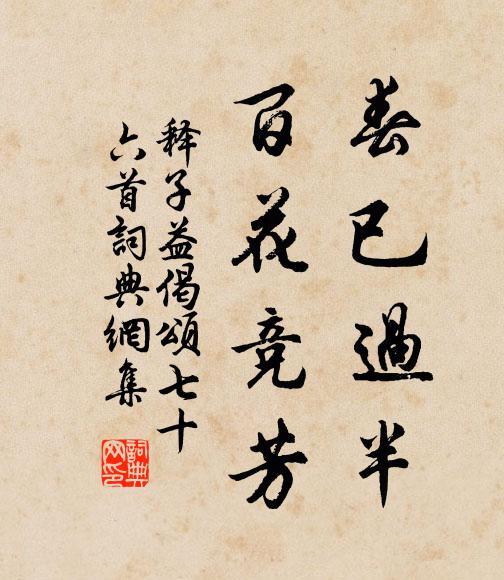 春已過半
百花竞芳
释子益偈頌七十
六首詞典網集
詞典
网印